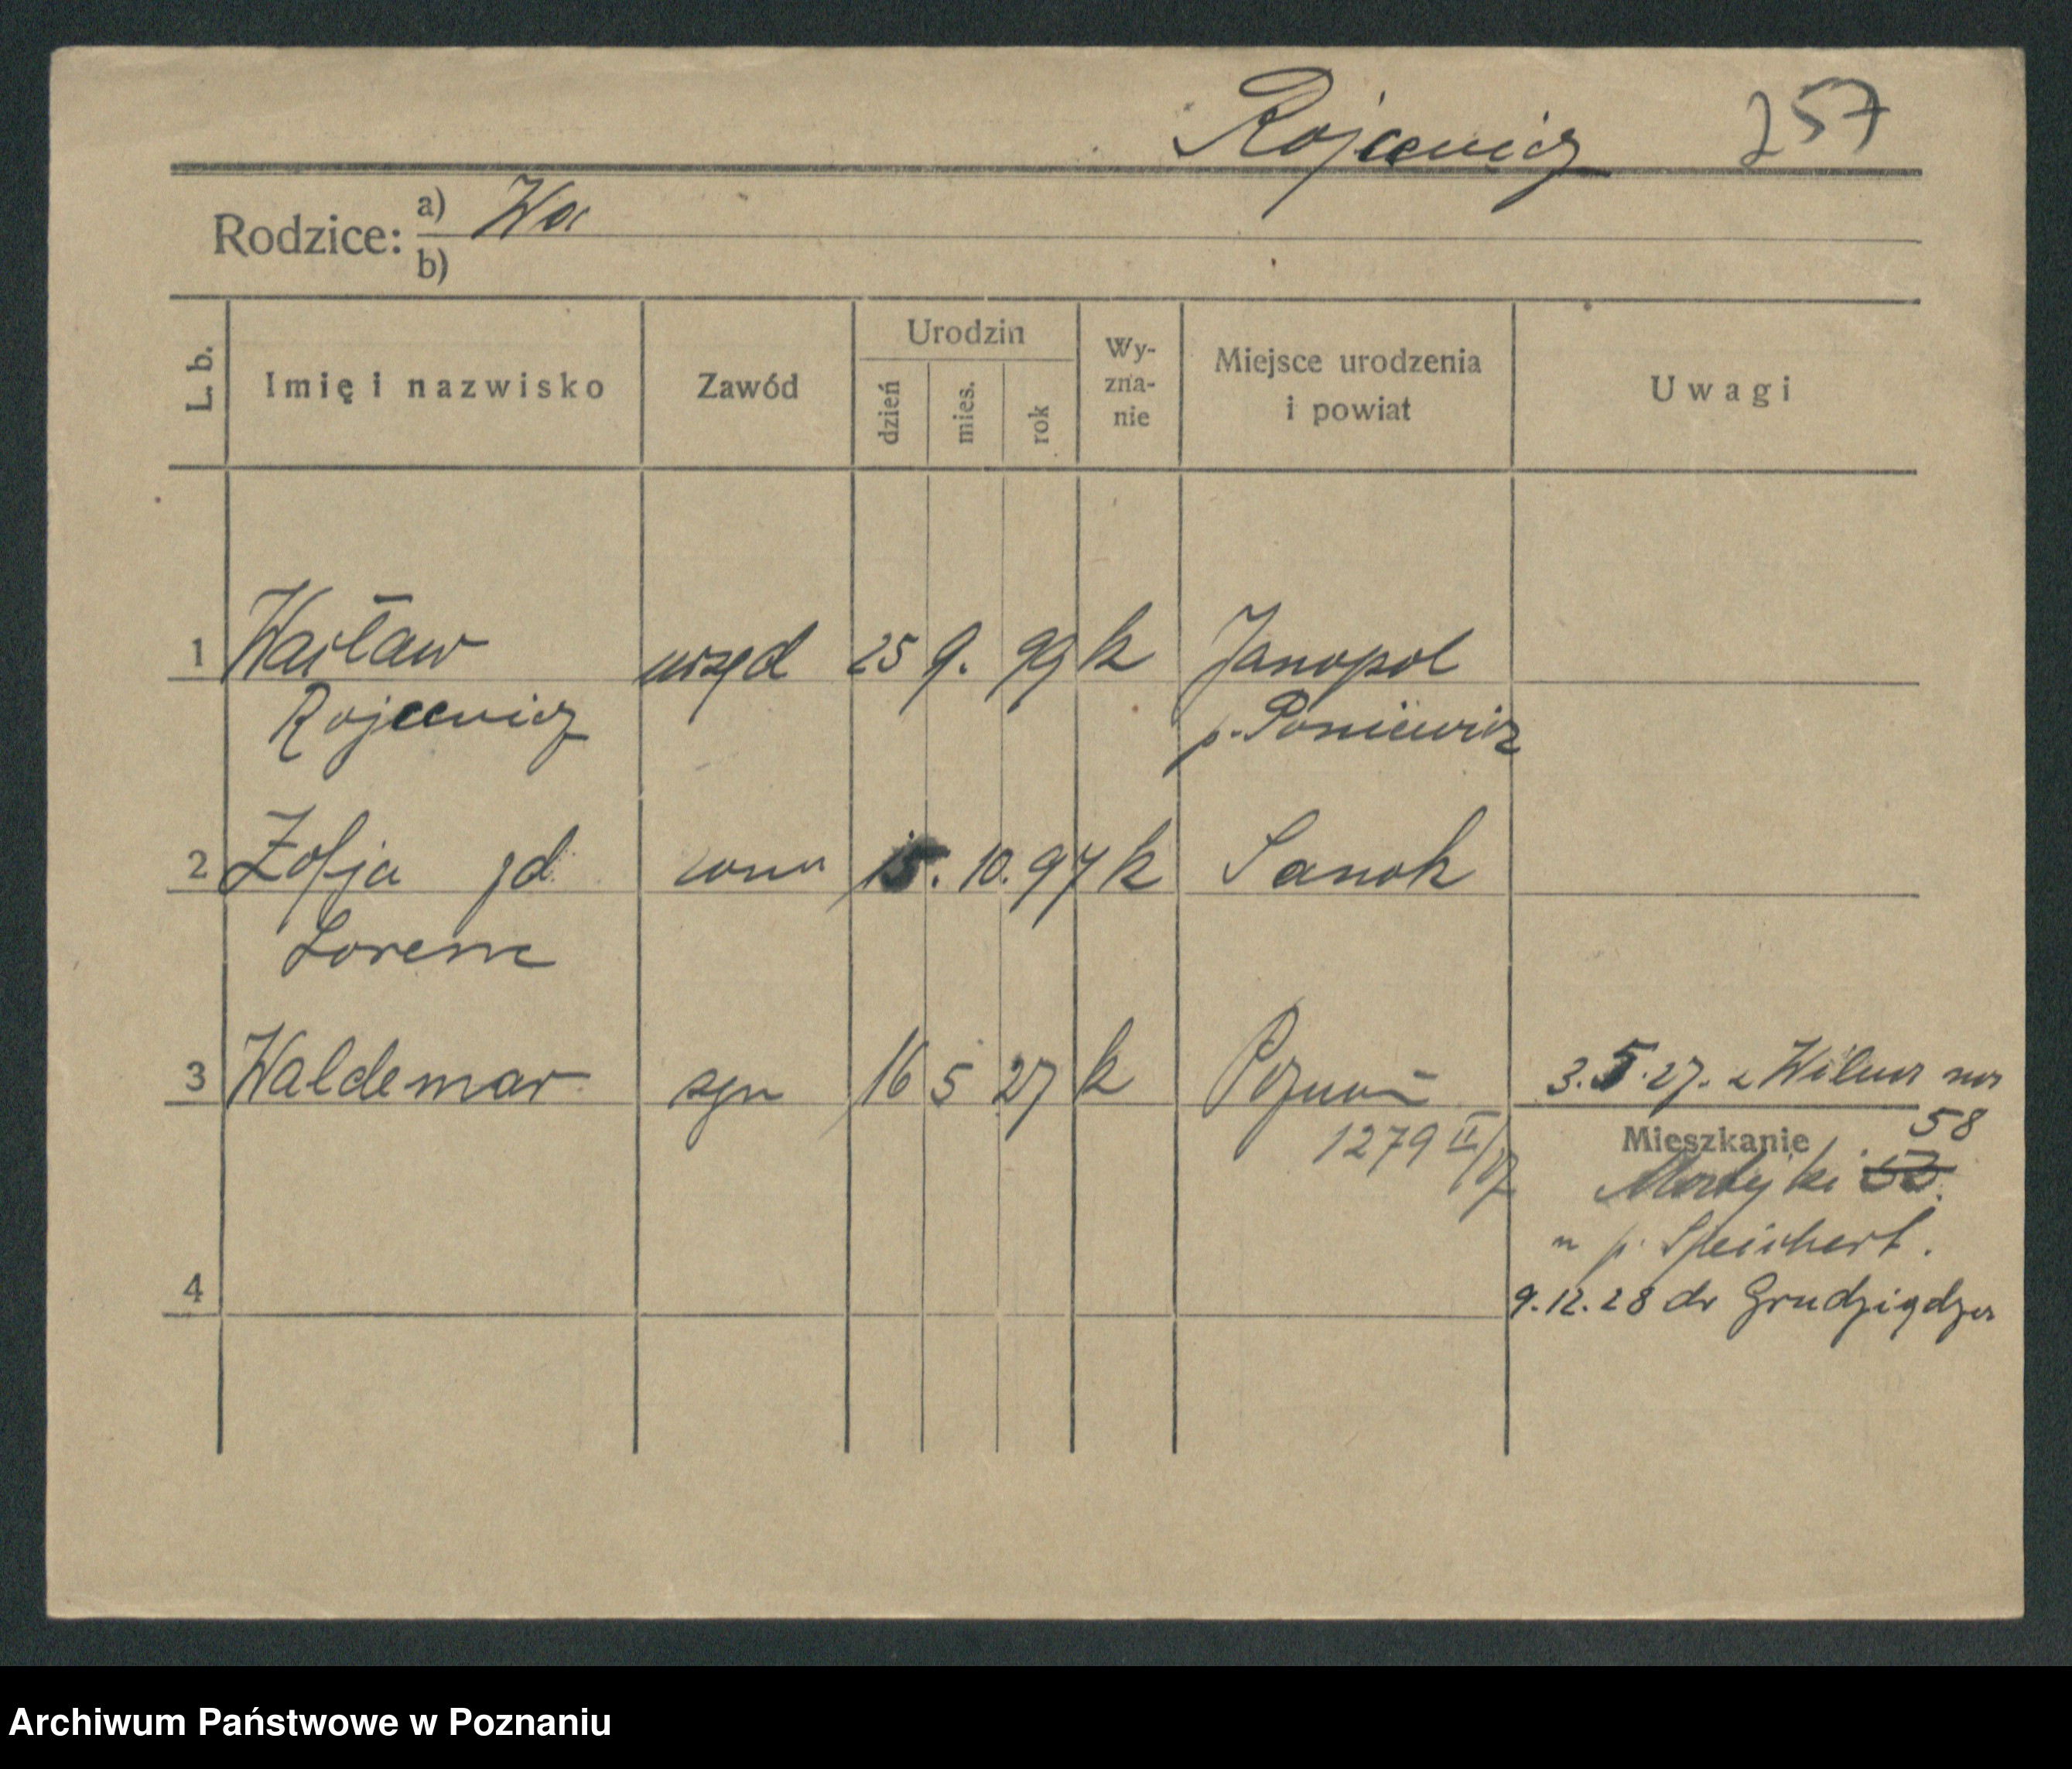 Rojcewicz 257
Rodzice: a) Wa
b)
L. b. Imię i nazwisko Zawód Urodzin dzień mies. rok Wy-zna-nie Miejsce urodzenia i powiat Uwagi
1 Wacław urzęd 25 9. 99 k Janopol
Rojcewicz p. Poniewicz
2 Zofja żona 15. 10. 97 k Sanok
Lorenc
3 Waldemar syn 16 5 27 k Poznań 3.5.27. z Wilna na
1279 II/27 Mieszkanie 58
p. Speichert.
4 9.12.28 do Grudziądza
Archiwum Państwowe w Poznaniu